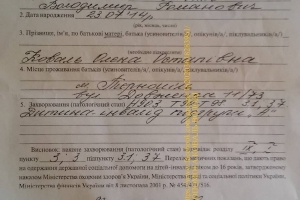 Володимир Романович
2. Дата народження 23.07.14р.
(рік, місяць, число)
3. Прізвище, ім'я, по батькові матері, батька (усиновителів/я/, опікунів/а/, піклувальників/а/)
Коваль Олена Остапівна
4. Місце проживання батьків (усиновителів/я/, опікунів/а/, піклувальників/а/)
м. Тернопіль
вул. Довженка 11/73
5. Захворювання (патологічний стан)
Дитина-інвалід підгрупи "А"
Висновок: захворювання (патологічний стан) відповідає розділу
пункту 3, 3 підпункту 31, 37 Переліку медичних показань, що дають право
на одержання державної соціальної допомоги на дітей-інвалідів віком до 16 років, затвердженому
наказом Міністерства охорони здоров'я України, Міністерства праці та соціальної політики України,
Міністерства фінансів України від 8 листопада 2001 р. № 454/471/516.